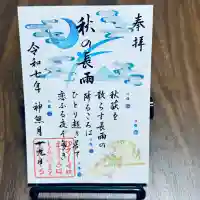 奉拝
秋の長雨
秋萩を
散らす長雨の
降るころは
ひとり起き居て
恋ふる夜ぞ多き
令和七年 神無月